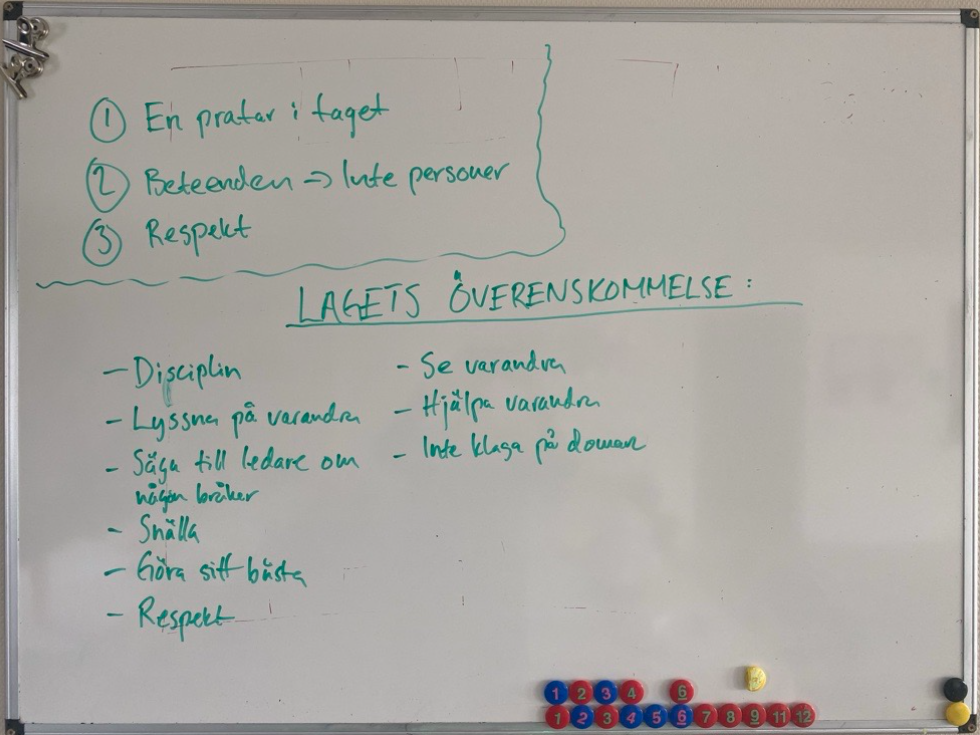 ① En pratar i taget
② Beteenden => Inte personer
③ Respekt
LAGETS ÖVERENSKOMMELSE:
- Disciplin
- Lyssna på varandra
- Säga till ledare om
någon bråker
- Snälla
- Göra sitt bästa
- Respekt
- Se varandra
- Hjälpa varandra
- Inte klaga på domare
1 2 3 4 6
1 2 3 4 5 6 7 8 9 11 12